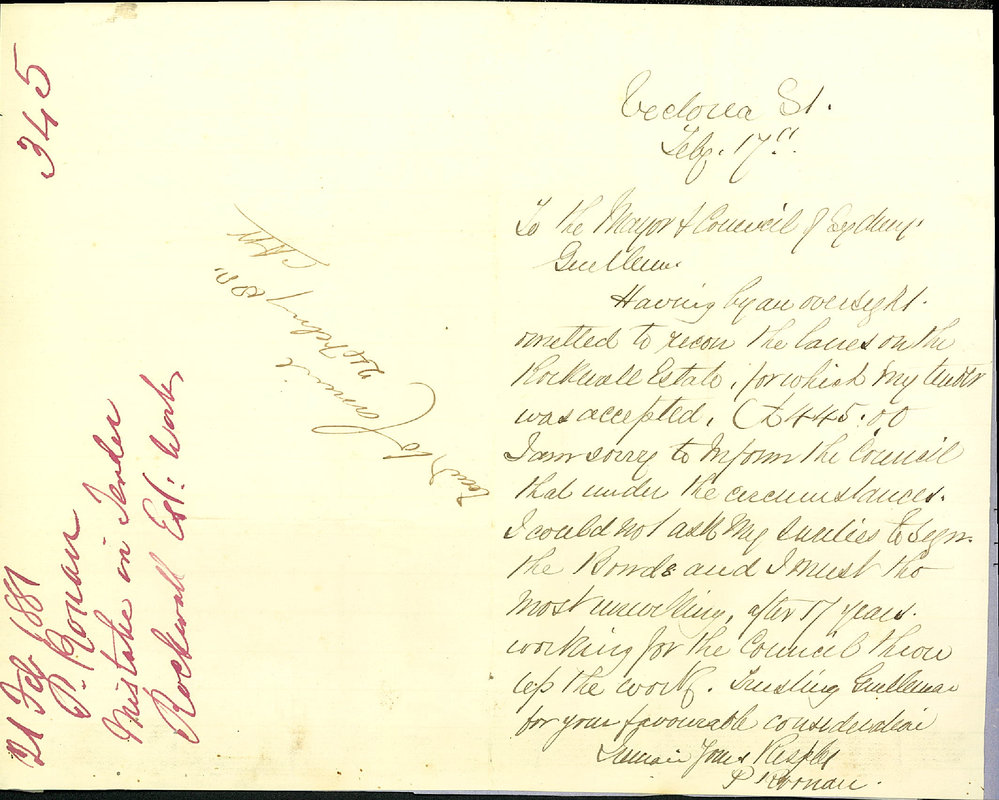 345
21 Feb 1881
P. Ronan
Mistake in Tender
Rockwall Est: Work
Read to Council
24 Feby
Victoria St.
Feby. 17"
To the Mayor & Council of Sydney.
Gentlemen.
Having by an oversight.
omitted to recon the lanes on the
Rockwall Estate, for which my tender
was accepted, (£445.00
I am sorry to inform the Council
that under the circumstances.
I could not ask my sureties to sign.
the Bonds and I must tho
most unwilling, after 17 years.
working for the Council throw
up the work. Trusting Gentlemen
for your favourable consideration
I remain Yours Respfly
P Roonan.